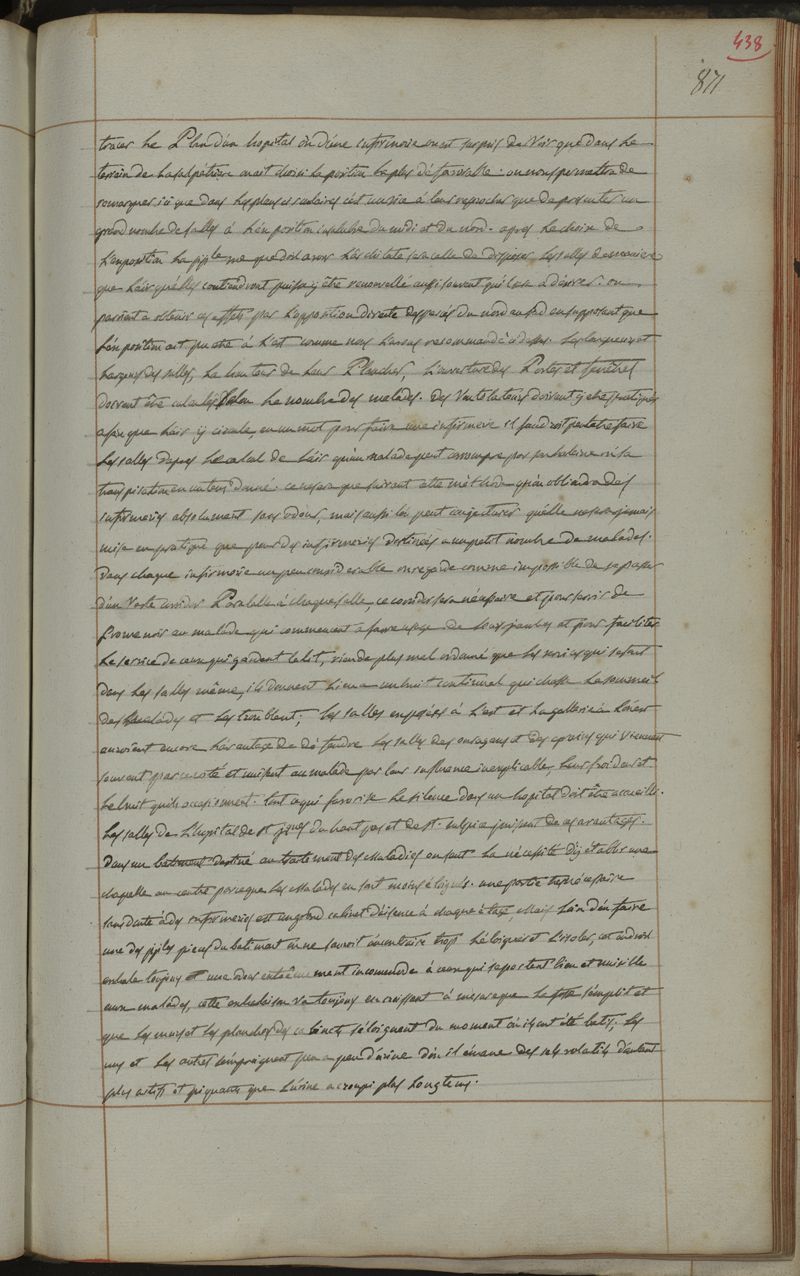 438
871
tracer le Plan d'un hopital où d'une infirmerie on est surpris de Voir que dans le
terrein de la salpétriere on ait choisi la position la plus défavorable : on nous permettra de
remarquer ici que dans les places séculaires c'est un vice à leur reprocher que de presenter un
grand nombre de salles à l'exposition insalubre du midi et du nord. apres le choix de
l'exposition la pple vue que doit avoir l'architecte sera celle de disposer les salles de maniere
que l'air qu'elles contiendront puisse y être renouvellé aussi souvent qu'il est à désirer. on
parvient a obtenir ces effets par l'opposition directe d'espaces du nord au sud en supposant que
l'exposition ait pu etre à l'est comme nous l'avons recommandé cidessus. Les longueurs et
largeurs des salles, la hauteur de leur Plancher, l'ouverture des Portes et fenêtres
doivent être calculés selon le nombre des malades. des Ventilateurs doivent y etre pratiqués
afin que l'air y circule, en un mot pour faire une infirmerie il faudroit peut etre faire
les salles d'apres le calcul de l'air qu'un malade peut corrompre par son haleine où sa
transpiration en un tems donné : ce n'est que suivant cette méthode qu'on obtiendra des
infirmeries absolument sans odeur, mais aussi l'on peut conjecturer qu'elle ne sera jamais
mise en pratique que pour des infirmeries destinées a un petit nombre de malades.
dans chaque infirmerie un peu considerable on regarde comme impossible de se passer
d'un Vaste corridor Paralelle à chaque salle, ce corridor sera nécessaire et pour servir de
promenoir au malade qui commencent a faire usage de leurs jambes et pour faciliter
le service de ceux qui gardent le lit, rien de plus mal ordonné que les services qui se font
dans les salles même, ils donnent lieu a un bruit continuel qui chasse le sommeil
des Malades et les troublent ; les salles exposées à l'est et la gallerie à l'ouest
auroient encore l'avantage de défendre les salles des ouragans et des orages qui viennent
souvent par ce coté et nuisent au malade par leur influence inexplicable, leur froideur et
le bruit qu'ils occasionnent. tout ce qui favorise le silence dans un hopital doit être accueilli.
Les salles de L'hopital de st jques du haut pas et de st. sulpice jouissent de ces avantages.
Dans un batiment destiné au traitement des Maladies on sent la nécessité d'y établir une
chapelle au centre parceque les Malades en sont moins éloignés. une partie très nécessaire
sans doute à des infirmeries est un grand cabinet d'aisance à chaque étage, Mais loin d'en faire
une des pples pieces du batiment on ne sauroit au contraire trop l'éloigner et l'isoler, cet endroit
exhale toujours une odeur extrêmement incommode à ceux qui se portent bien et nuisible
aux malades, cette exhalaison va toujours en croissant à mesure que la fosse s'emplit et
que les murs et les planchers des cabinets s'éloignent du moment où ils ont été batis, les
uns et les autres s'impreignent peu a peu d'urine d'où il émane des sels volatils d'autant
plus actifs et piquants que l'urine a croupi plus longtems.